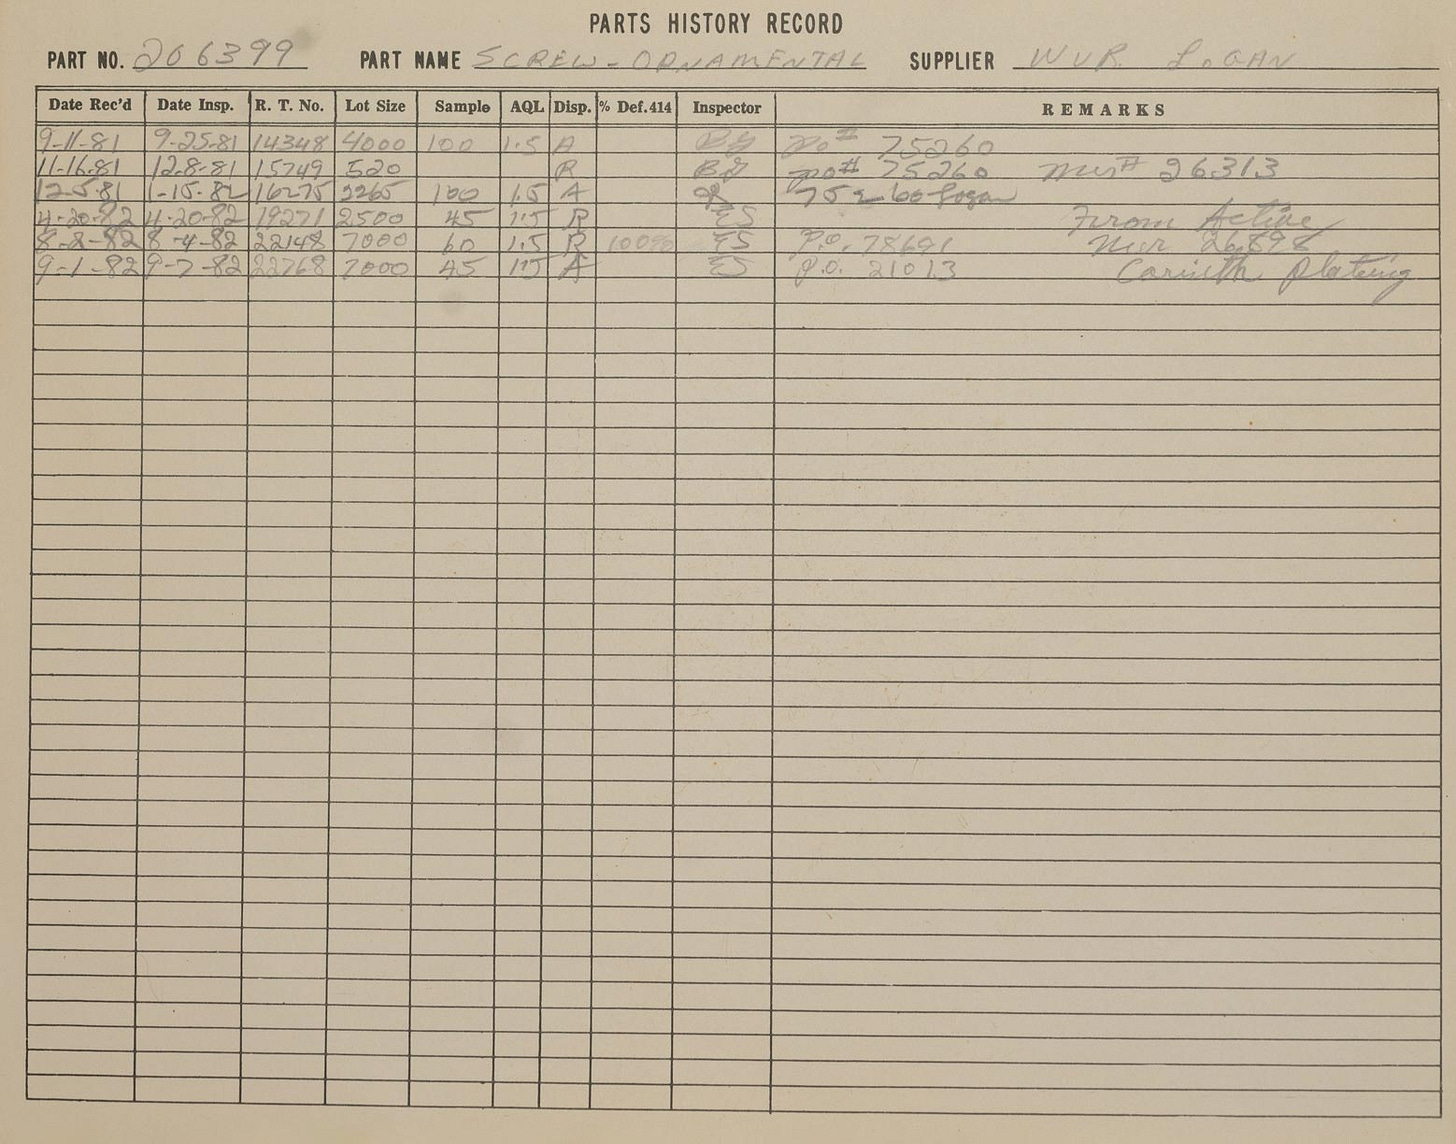 PARTS HISTORY RECORD
PART NO. 206399 PART NAME SCREW-ORNAMENTAL SUPPLIER WUR LOGAN
Date Rec'd Date Insp. R. T. No. Lot Size Sample AQL Disp. % Def. 414 Inspector REMARKS
9-11-81 9-25-81 14348 4000 100 1.5 A BG PO# 75260
11-16-81 12-8-81 15749 520 R BG PO# 75260 MUR# 26313
12-5-81 1-15-82 16275 100 1.5 A 75260 Logan
4-20-82 4-20-82 19271 2500 45 1.5 R ES From Active
8-2-82 8-4-82 22148 7000 60 1.5 R 100% ES P.O. 78691 MUR 26,898
9-1-82 9-7-82 22768 7000 45 1.5 A ES P.O. 21013 Plating